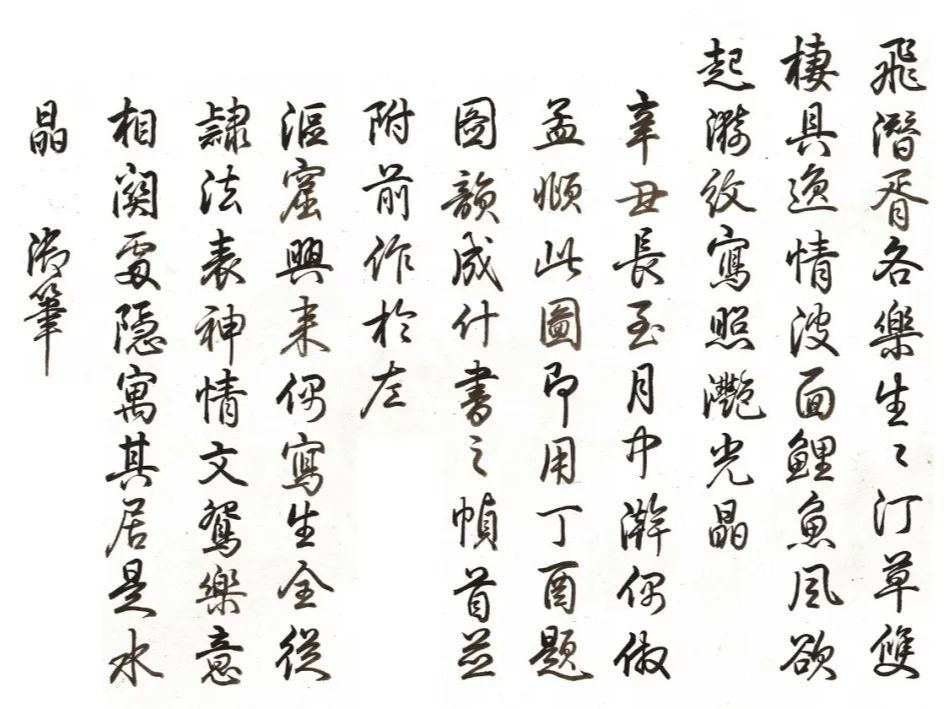 飛潛胥各樂生〻汀草雙
棲具逸情波面鯉魚風欲
起漪紋寫照灔光晶
辛丑長至月中澣偶倣
孟頫此圖即用丁酉題
圖韻成什書之幀首並
附前作於左
漚窠興來偶寫生全從
隸法表神情文鴛樂意
相關處隱寓其居是水
晶 御筆